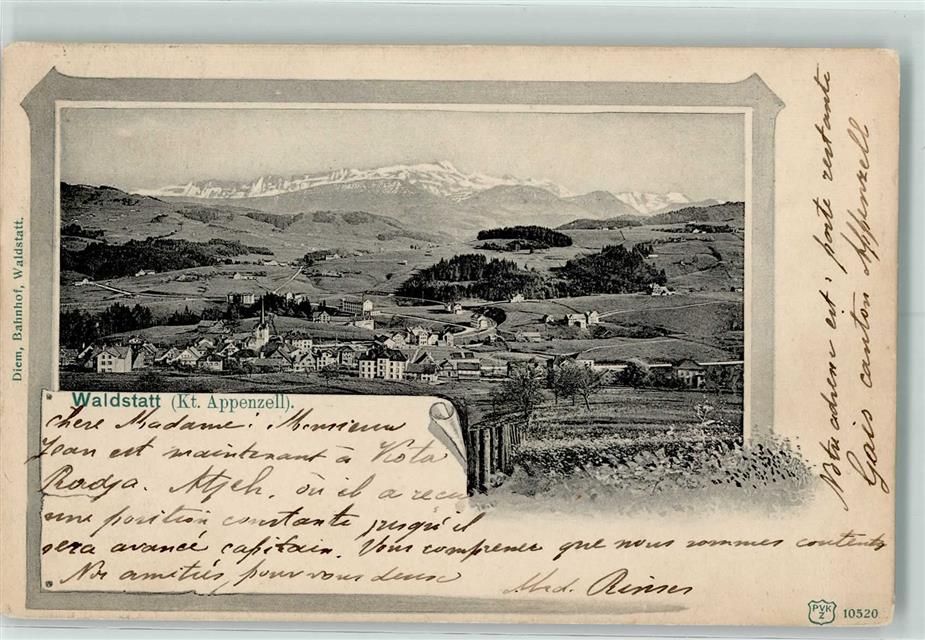 Diem, Bahnhof, Waldstatt.
Waldstatt (Kt. Appenzell).
chere Madame! Monsieur
Jean est maintenant à Kota
Radja. Atjeh, où il a recu
une position constante jusqu'il
sera avancé capitain. Vous comprenez que nous sommes contents
Nos amitiés pour vous deux
Mad. Rinses
Notre adresse est: poste restante
Gais canton Appenzell
PVK
Z
10520